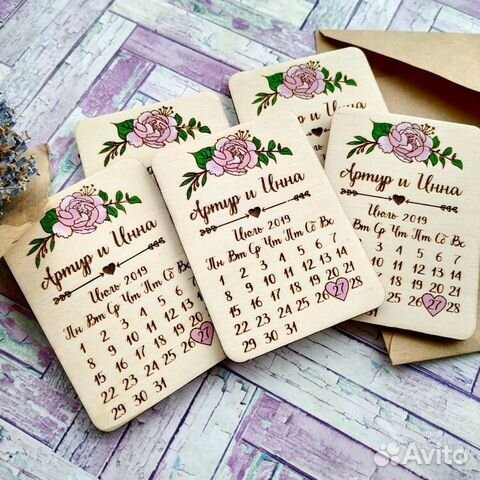 Артур и Инна
Июль 2019
Пн Вт Ср Чт Пт Сб Вс
1 2 3 4 5 6 7
8 9 10 11 12 13 14
15 16 17 18 19 20 21
22 23 24 25 26 27 28
29 30 31
Артур и Инна
Июль 2019
Пн Вт Ср Чт Пт Сб
1 2 3 4 5
8 9 10 11 12
15 16 17 18 19 20
22 23 24 25 26
29 30 31
Артур и Инна
Июль 2019
Вт Ср Чт Пт Сб Вс
4 5 6 7
11 12 13 14
18 19 20 21
25 26 27 28
Avito